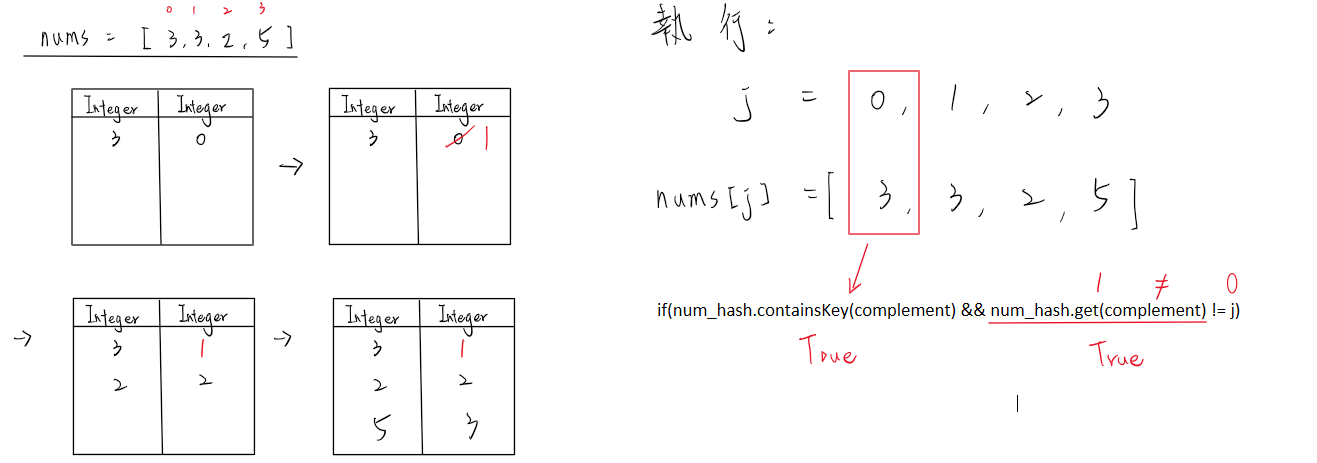 0 1 2 3
nums = [ 3, 3, 2, 5 ]
Integer Integer
3 0
→
Integer Integer
3 0 1
→
Integer Integer
3 1
2 2
→
Integer Integer
3 1
2 2
5 3
執行:
j = 0, 1, 2, 3
nums[j] = [ 3, 3, 2, 5 ]
1 ≠ 0
if(num_hash.containsKey(complement) && num_hash.get(complement) != j)
True True